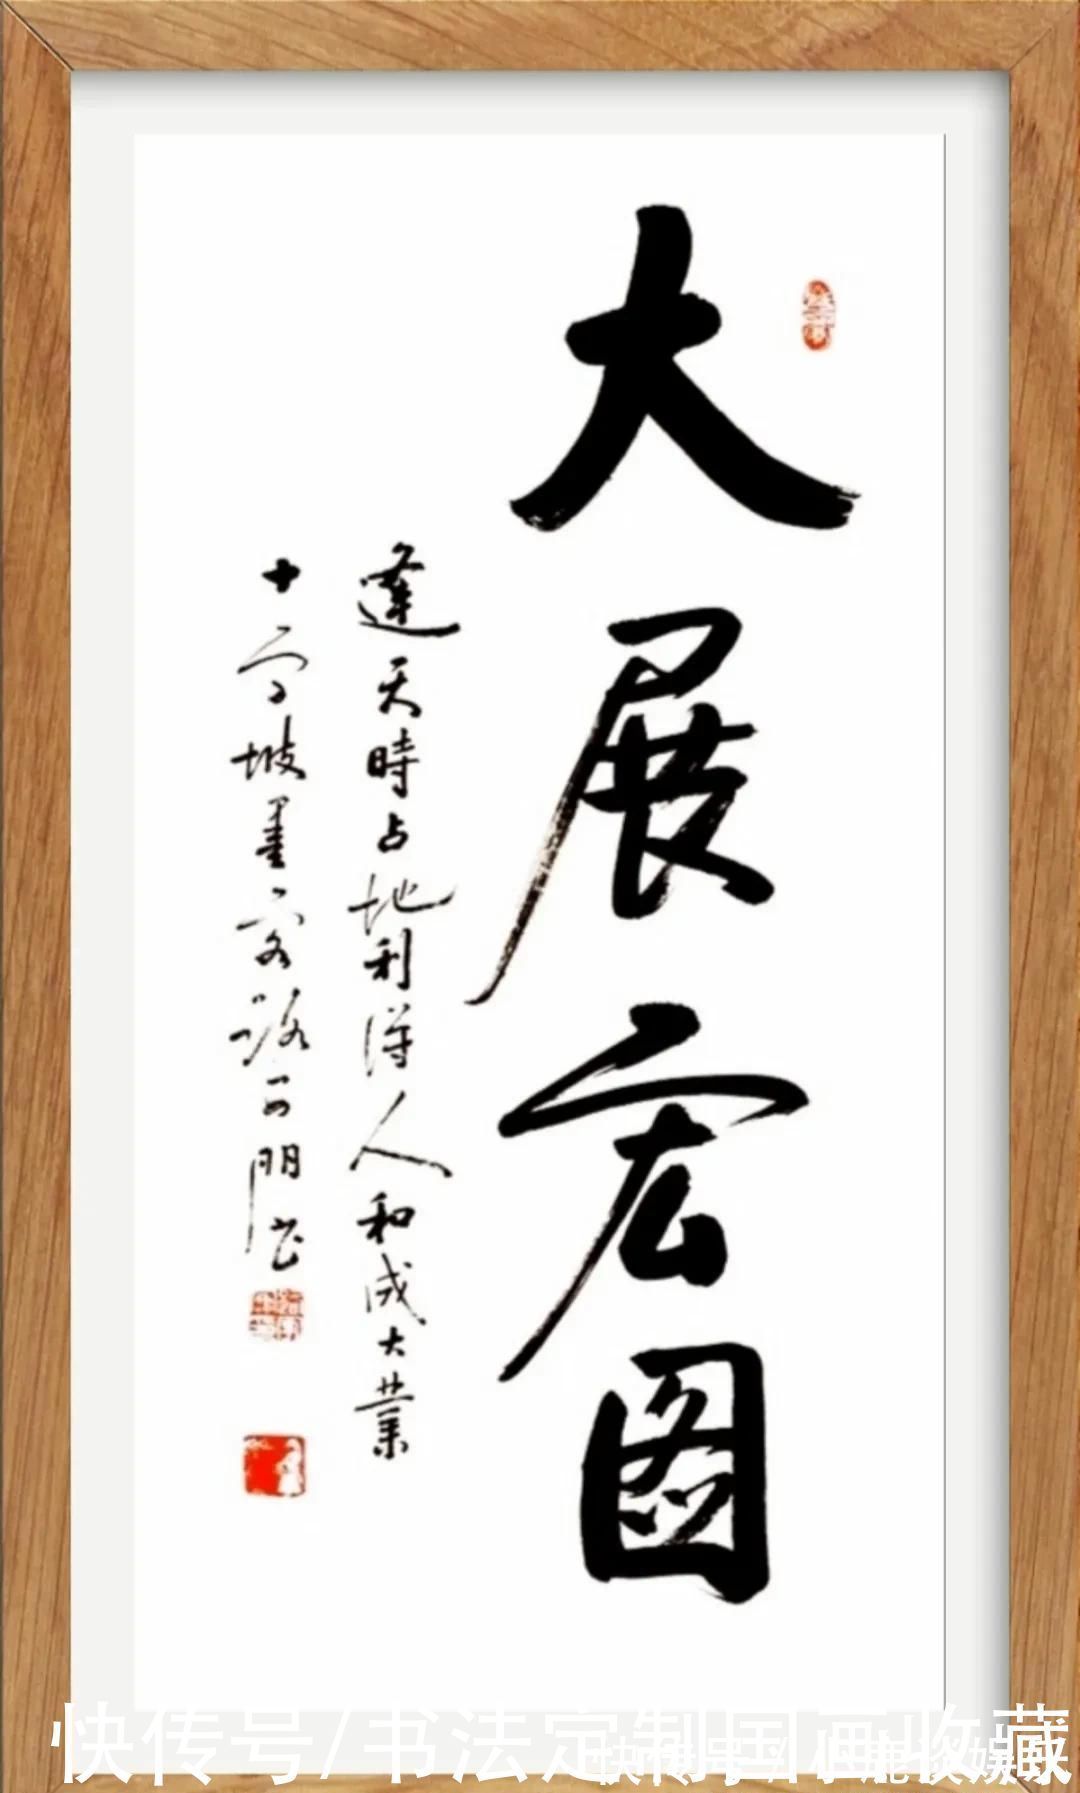 大展宏图
逢天時占地利得人和成大業
十字坡墨客路
快传号/书法定制国画收藏